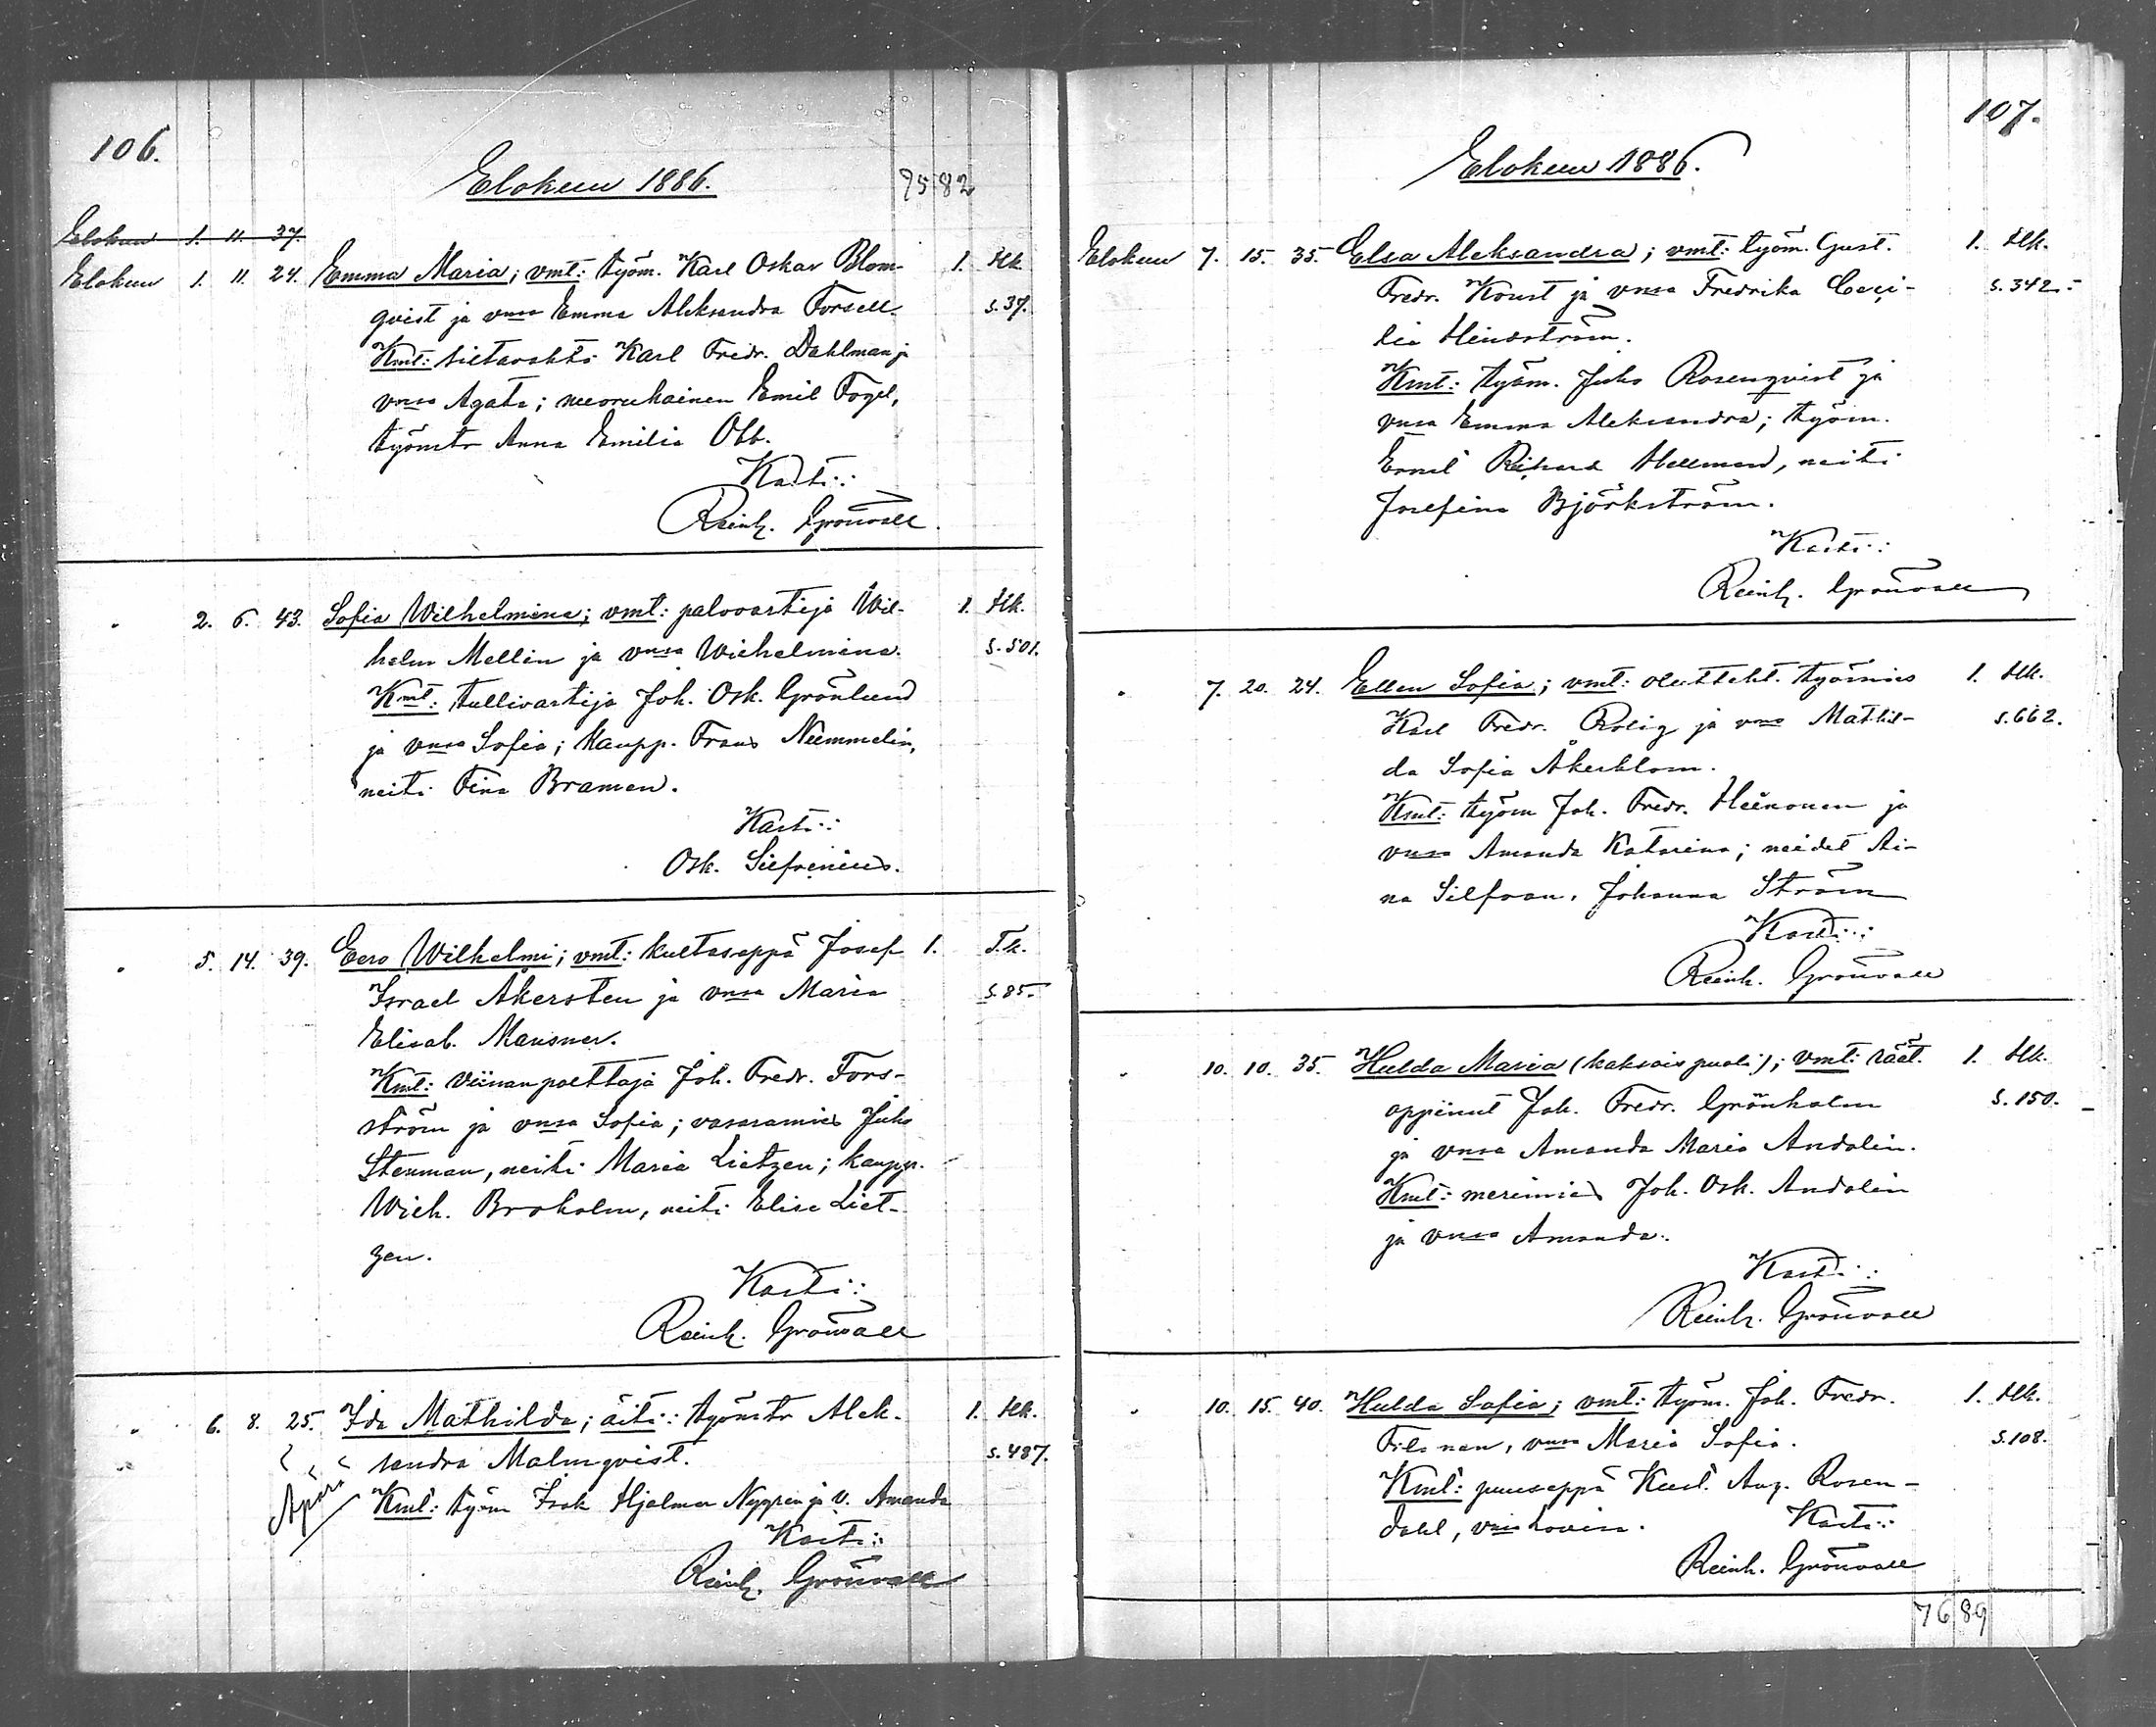 106.
Elokuu 1886.
75 82
Elokuu 1. 11. 37.
Elokuu 1. 11. 24. Emma Maria; vmt: työm. Karl Oskar Blom- 1. Hk.
qvist ja vnsa Emma Aleksandra Forsell. s. 37.
Kmt: siltavahti Karl Fredr. Dahlman ja
vnsa Agata; nuorukainen Emil Fogel,
työmtr Anna Emilia Obb.
Kasti:
Reinh. Grönvall.
" 2. 6. 43. Sofia Wilhelmina; vmt: palovartija Wil- 1. Hk.
helm Mellin ja vnsa Wilhelmina. s. 501.
Kmt: tullivartija Joh. Osk. Grönlund
ja vnsa Sofia; kaupp. Frans Nummelin,
neiti Fina Braman.
Kasti:
Osk. Silfvenius.
" 5. 14. 39. Eero Wilhelmi; vmt: kultaseppä Josef 1. T.k.
Israel Åkersten ja vnsa Maria s. 85.
Elisab. Mausner.
Kmt: viinanpolttaja Joh. Fredr. Fors-
ström ja vnsa Sofia; vasaramies Juho
Stenman, neiti Maria Lietzen; kaupp.
Wilh. Broholm, neiti Elise Liet-
zen.
Kasti:
Reinh. Grönvall
" 6. 8. 25. Ida Mathilda; äiti: työmtr Alek- 1. Hk.
sandra Malmqvist. s. 487.
Äpärä Kmt: työm Isak Hjalmar Nygren ja v. Amanda
Kasti:
Reinh. Grönvall
107.
Elokuu 1886.
Elokuu 7. 15. 35. Elsa Aleksandra; vmt: työm. Gust. 1. Hk.
Fredr. Koust ja vnsa Fredrika Ceci- s. 342.
lia Hindström.
Kmt: työm. Juho Rosenqvist ja
vnsa Emma Aleksandra; työm.
Ernil Rikard Hellman, neiti
Josefina Björkström.
Kasti:
Reinh. Grönvall
" 7. 20. 24. Ellen Sofia; vmt: olutteht. työmies 1. Hk.
Karl Fredr. Rolig ja vnsa Mathil- s. 662.
da Sofia Åkerblom.
Kmt: työm Joh. Fredr. Heinonen ja
vnsa Amanda Katarina; neidet Ai-
na Silfvan, Johanna Ström
Kasti:
Reinh. Grönvall
" 10. 10. 35. Hulda Maria (kaksois puoli); vmt: räät. 1. Hk.
oppinut Joh. Fredr. Grönholm s. 150.
ja vnsa Amanda Maria Andelin.
Kmt: merimies Joh. Osk. Andelin
ja vnsa Amanda.
Kasti:
Reinh. Grönvall
" 10. 15. 40. Hulda Sofia; vmt: työm. Joh. Fredr. 1. Hk.
vnsa Maria Sofia. s. 108.
Kmt: puuseppä Kust. Aug. Rosen-
dahl, vnsa Lovisa. Kasti:
Reinh. Grönvall
76 89